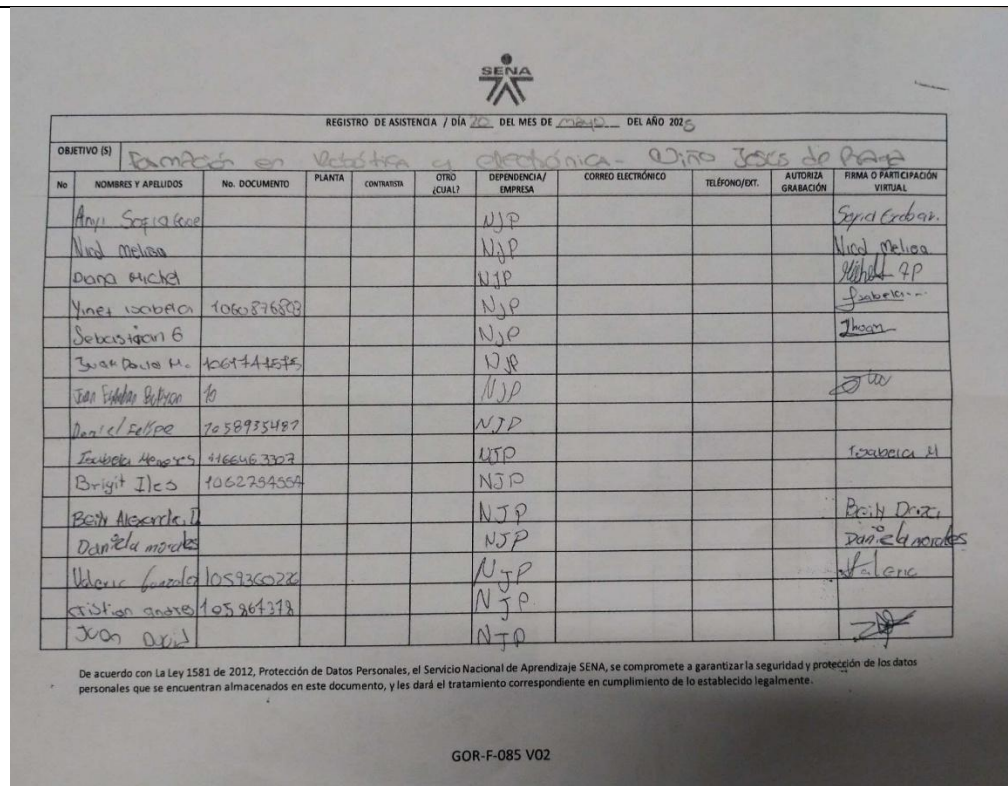 SENA
REGISTRO DE ASISTENCIA / DÍA 20 DEL MES DE mayo DEL AÑO 2025
OBJETIVO (S) Formación en Robótica y electrónica - Niño Jesus de Praga
No NOMBRES Y APELLIDOS No. DOCUMENTO PLANTA CONTRATISTA OTRO ¿CUAL? DEPENDENCIA/ EMPRESA CORREO ELECTRÓNICO TELÉFONO/EXT. AUTORIZA GRABACIÓN FIRMA O PARTICIPACIÓN VIRTUAL
Anyi Sofia NJP Sofia
Nicol Melisa NJP Nicol Melisa
Diana Michel NJP
Yinet Isabela NJP Isabela
Sebastian G NJP Jhoan
Juan David M. NJP
Juan Esteban 10 NJP
Daniel Felipe 1058935487 NJP
Isabela Meneses NJP Isabela M
Brigit Iles NJP
NJP
Daniela morales NJP Daniela morales
1059360226 NJP Valeric
cristian andres 105864378 NJP
Juan David NJP
De acuerdo con La Ley 1581 de 2012, Protección de Datos Personales, el Servicio Nacional de Aprendizaje SENA, se compromete a garantizar la seguridad y protección de los datos
personales que se encuentran almacenados en este documento, y les dará el tratamiento correspondiente en cumplimiento de lo establecido legalmente.
GOR-F-085 V02